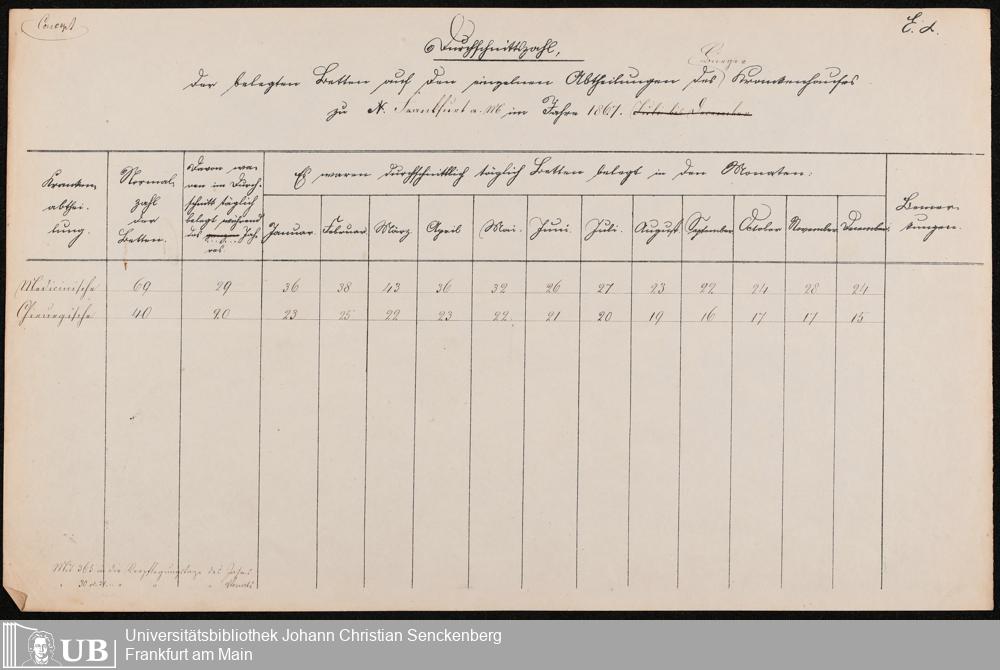 Concept
E. d.
Durchschnittszahl,
Bürger
der belegten Betten auf den einzelnen Abtheilungen des Krankenhauses
zu N. Frankfurt a. M im Jahre 1867. Juli bis December
Kranken-
abthei-
lung.
Normal-
zahl
der
Betten.
Davon wa-
ren im Durch-
schnitt täglich
belegt während
des Jah-
res
Es waren durchschnittlich täglich Betten belegt in den Monaten:
Januar. Februar. März April Mai. Juni. Juli. August September October November. December.
Bemer-
kungen.
Medicinische 69 29 36 38 43 36 32 26 27 23 22 24 28 24
Chirurgische 40 20 23 25 22 23 22 21 20 19 16 17 17 15
Mit 365 in die Verpflegungstage des Jahres
" 30 " " " Monats
UB
Universitätsbibliothek Johann Christian Senckenberg
Frankfurt am Main